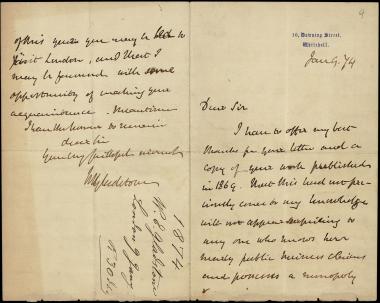 10, Downing Street,
Whitehall.
Jan 9. 74
Dear Sir
I have to offer my best
thanks for your letter and a
copy of your work published
in 1869. That this had not pre-
viously come to my knowledge
will not appear surprising to
any one who knows how
many public business claims
and possesses a monopoly
of this year you may be led to
visit London, and that I
may be favoured with some
opportunity of making your
acquaintance. Meantime
I have the honour to remain
dear Sir
Your very faithful servant
W E Gladstone
1874
W. E. Gladstone
London 9 Jany